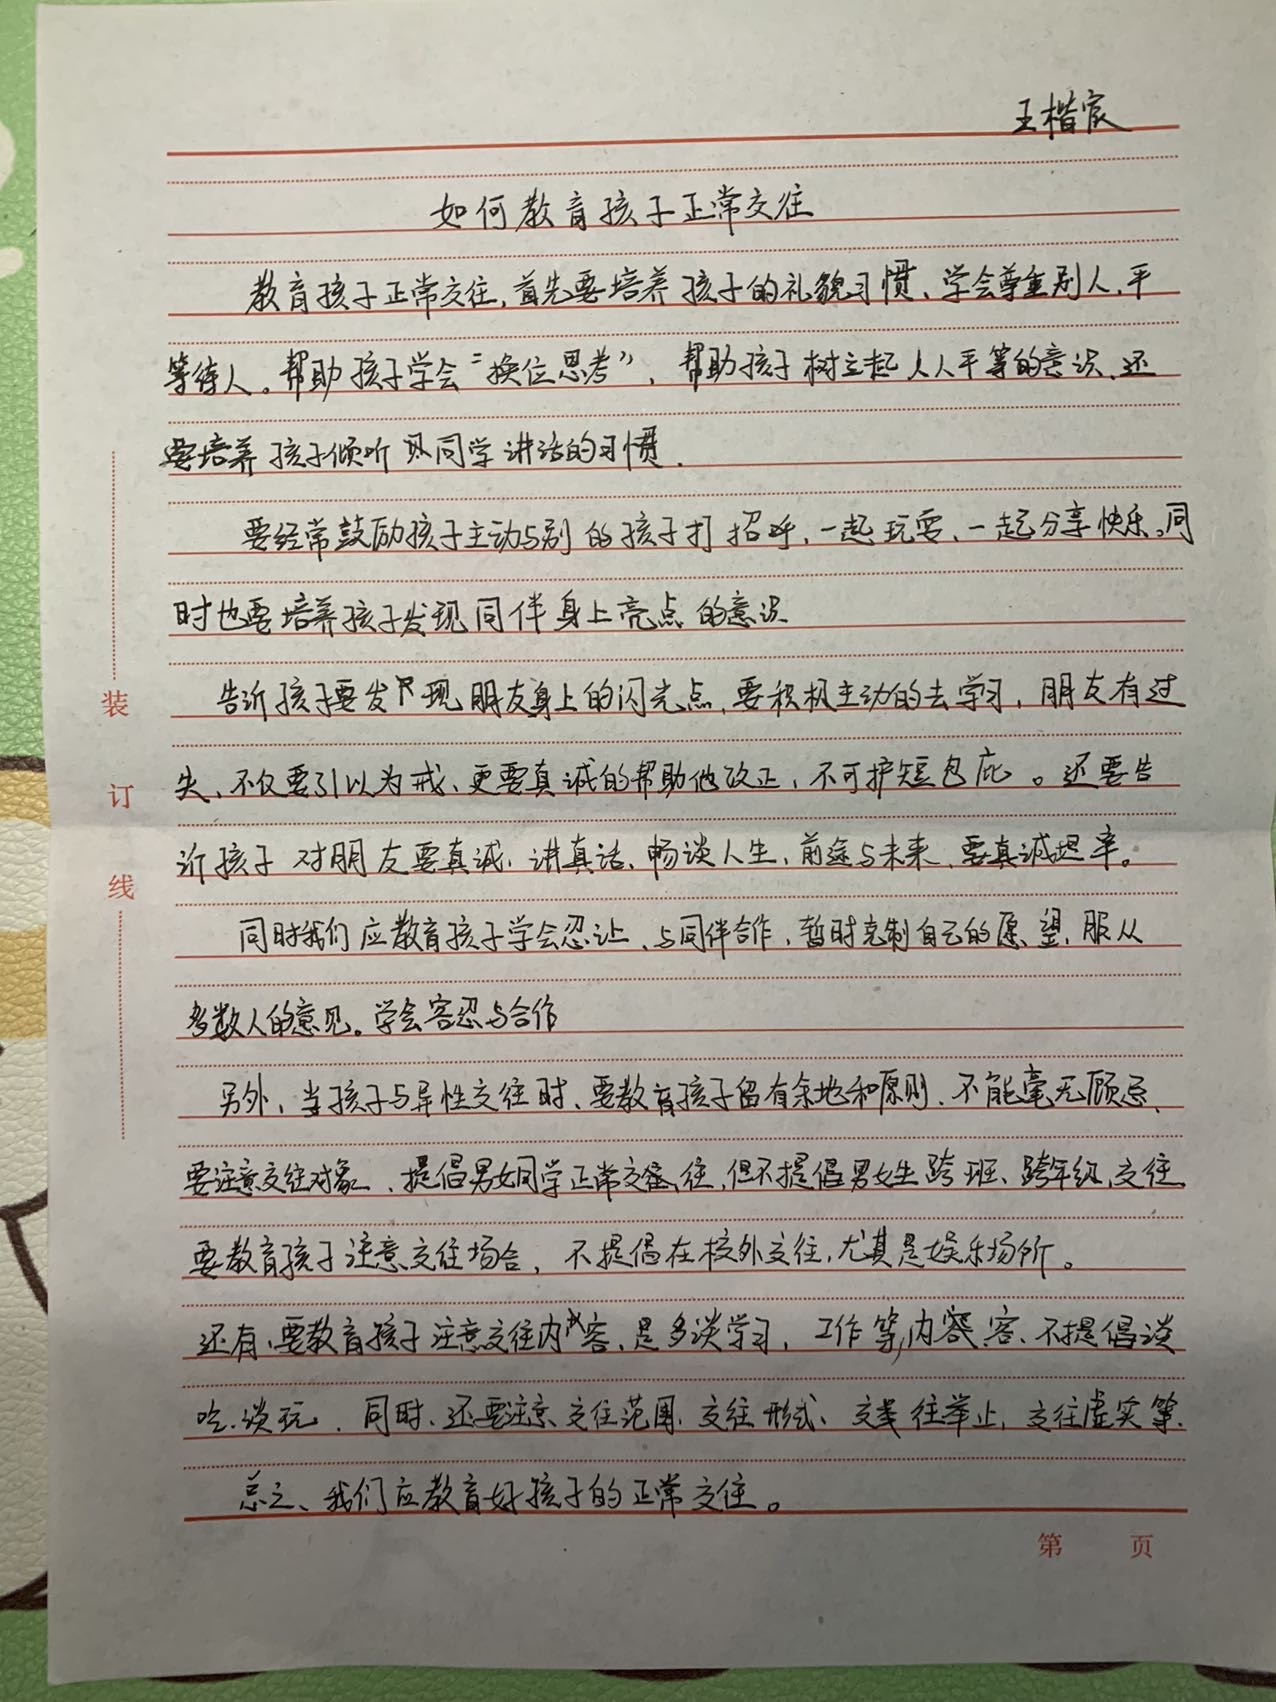 王楷宸
如何教育孩子正常交往
教育孩子正常交往,首先要培养孩子的礼貌习惯、学会尊重别人,平
等待人。帮助孩子学会“换位思考”,帮助孩子树立起人人平等的意识,还
要培养孩子倾听同学讲话的习惯.
要经常鼓励孩子主动与别的孩子打招呼,一起玩耍、一起分享快乐。同
时也要培养孩子发现同伴身上亮点的意识
告诉孩子要发现朋友身上的闪光点,要积极主动的去学习,朋友有过
失,不仅要引以为戒、更要真诚的帮助他改正,不可护短包庇。还要告
诉孩子对朋友要真诚,讲真话,畅谈人生,前途与未来,要真诚坦率。
同时我们应教育孩子学会忍让,与同伴合作,暂时克制自己的愿望,服从
多数人的意见。学会容忍与合作
另外,当孩子与异性交往时、要教育孩子留有余地和原则,不能毫无顾忌、
要注意交往对象、提倡男女同学正常交往,但不提倡男女生跨班、跨年级,交往
要教育孩子注意交往场合,不提倡在校外交往,尤其是娱乐场所。
还有,要教育孩子注意交往内容,是多谈学习,工作等,内容、不提倡谈
吃.谈玩.同时、还要注意交往范围,交往形式、交往举止,交往虚实等.
总之、我们应教育好孩子的正常交往。
装
订
线
第 页